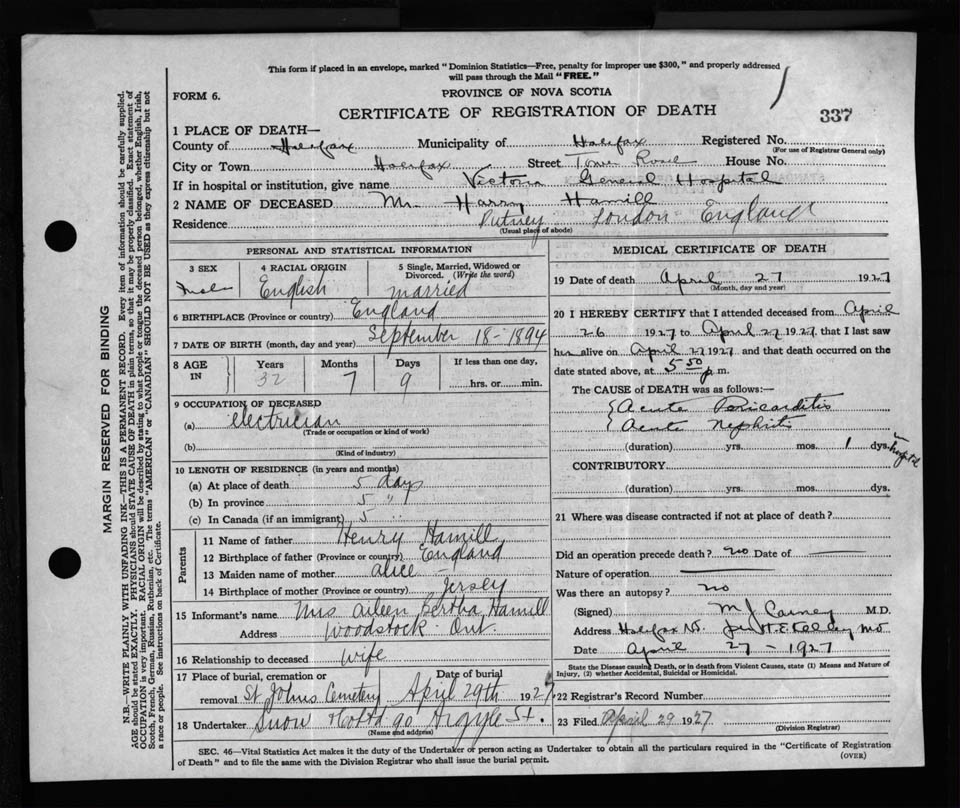 This form if placed in an envelope, marked "Dominion Statistics—Free, penalty for improper use $300," and properly addressed
will pass through the Mail "FREE."
FORM 6.
PROVINCE OF NOVA SCOTIA
CERTIFICATE OF REGISTRATION OF DEATH
337
1 PLACE OF DEATH—
County of Halifax Municipality of Halifax Registered No.
(For use of Registrar General only)
City or Town Halifax Street Tower Road House No.
If in hospital or institution, give name Victoria General Hospital
2 NAME OF DECEASED Mr. Harry Hamill
Residence Putney London England
(Usual place of abode)
PERSONAL AND STATISTICAL INFORMATION
3 SEX
male
4 RACIAL ORIGIN
English
5 Single, Married, Widowed or
Divorced. (Write the word)
married
6 BIRTHPLACE (Province or country) England
7 DATE OF BIRTH (month, day and year) September 18-1894
8 AGE
IN
Years
32
Months
7
Days
9
If less than one day,
hrs. or min.
9 OCCUPATION OF DECEASED
(a) electrician
(Trade or occupation or kind of work)
(b)
(Kind of industry)
10 LENGTH OF RESIDENCE (in years and months)
(a) At place of death 5 days
(b) In province 5 "
(c) In Canada (if an immigrant) 5
Parents
11 Name of father Henry Hamill
12 Birthplace of father (Province or country) England
13 Maiden name of mother alice —
14 Birthplace of mother (Province or country) Jersey
15 Informant's name Mrs Aileen Bertha Hamill
Address Woodstock Ont.
16 Relationship to deceased wife
17 Place of burial, cremation or Date of burial
removal St Johns Cemetery April 29th 1927
18 Undertaker Snow 90 Argyle St.
(Name and address)
MEDICAL CERTIFICATE OF DEATH
19 Date of death April 27 1927
(Month, day and year)
20 I HEREBY CERTIFY that I attended deceased from April
26 1927 to April 27 1927, that I last saw
him alive on April 27 1927 and that death occurred on the
date stated above, at 5 50 p.m.
The CAUSE of DEATH was as follows:—
Acute Pericarditis
Acute Nephritis
(duration) yrs. mos. 1 dys. in hospital
CONTRIBUTORY
(duration) yrs. mos. dys.
21 Where was disease contracted if not at place of death?
Did an operation precede death? no Date of
Nature of operation
Was there an autopsy? no
(Signed) M J Carney M.D.
Address Halifax N.S.
Date April 27-1927
State the Disease causing Death, or in death from Violent Causes, state (1) Means and Nature of
Injury, (2) whether Accidental, Suicidal or Homicidal.
22 Registrar's Record Number
23 Filed April 29 1927
(Division Registrar)
SEC. 46—Vital Statistics Act makes it the duty of the Undertaker or person acting as Undertaker to obtain all the particulars required in the "Certificate of Registration
of Death" and to file the same with the Division Registrar who shall issue the burial permit.
(OVER)
MARGIN RESERVED FOR BINDING
N.B.—WRITE PLAINLY WITH UNFADING INK—THIS IS A PERMANENT RECORD. Every item of information should be carefully supplied.
AGE should be stated EXACTLY. PHYSICIANS should STATE CAUSE OF DEATH in plain terms, so that it may be properly classified. Exact statement of
OCCUPATION is very important. RACIAL ORIGIN will be described by stating to what people or tongue the deceased person belonged, whether English, Irish,
Scotch, French, German, Russian, Ruthenian, etc. The terms "AMERICAN" or "CANADIAN" SHOULD NOT BE USED as they express citizenship but not
a race or people. See instructions on back of Certificate.